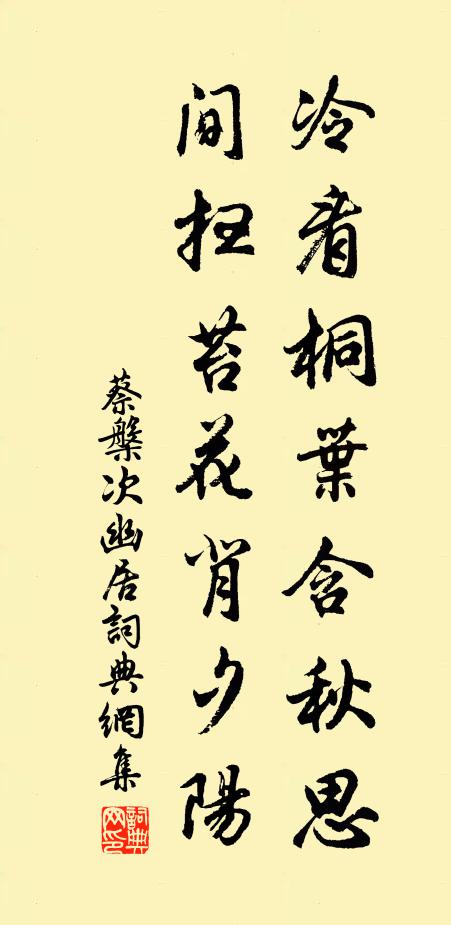 冷看桐葉含秋思
间扫苔花背夕陽
蔡槃次幽居詞典網集
詞典网印